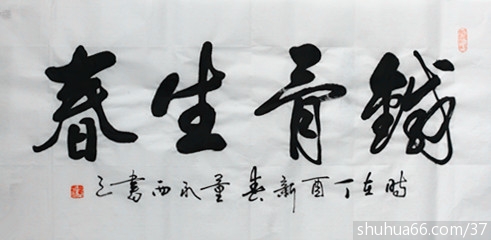 鐵骨生春
時在丁酉新春董永西書之
shuhua66.com/37